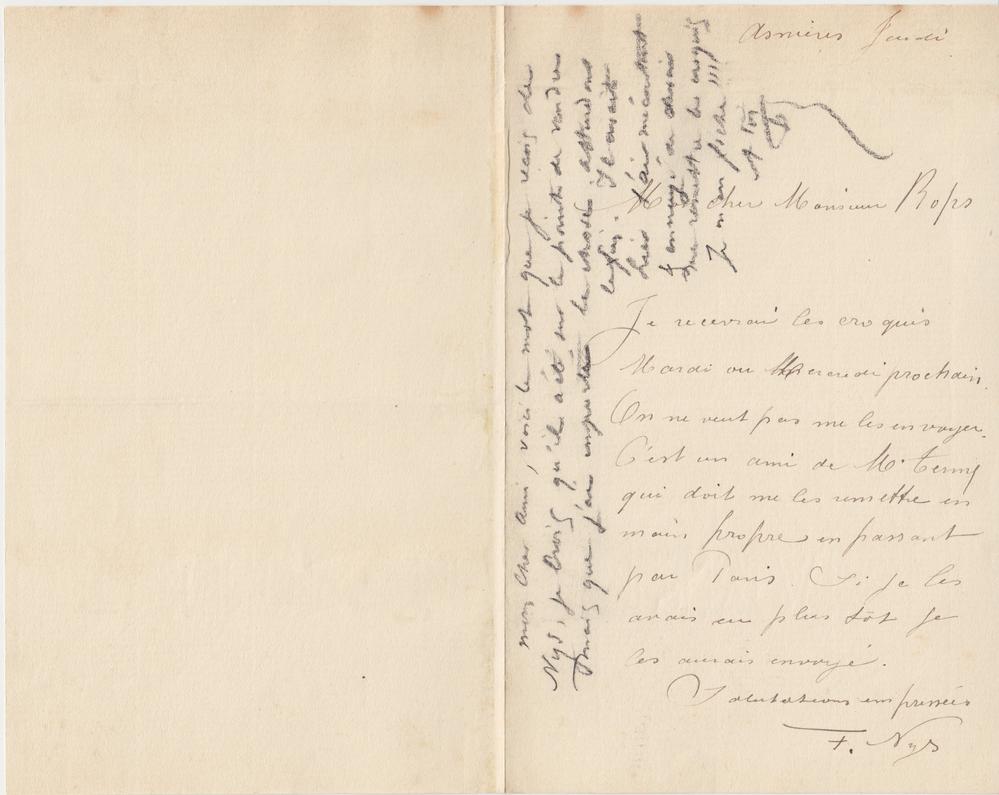 Asnières Jeudi
Mon cher Monsieur Rops
Je recevrai les croquis
Mardi ou Mercredi prochain.
On ne veut pas me les envoyer.
C'est un ami de Mr
qui doit me les remettre en
main propre en passant
par Paris. Si je les
avais eu plus tôt je
les aurais envoyé.
Salutations empressées
F. Nys
mon cher ami, voici le mot que je reçois de
Nys, je crois qu'il a été sur le point de vendre
mais que j'ai la chose.
Il
hier l'air mécontent
&
me remettre les croquis
Je m'en fiche !!!
A toi